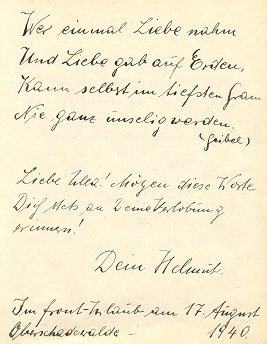 Wer einmal Liebe nahm
Und Liebe gab auf Erden,
Kann selbst im tiefsten Gram
Nie ganz unselig werden.
(Geibel)
Liebe Ulla! Mögen diese Worte
Dich stets an Deine Verlobung
erinnern!
Dein Helmut.
Im Front-Urlaub am 17. August
Oberschadewalde - 1940.